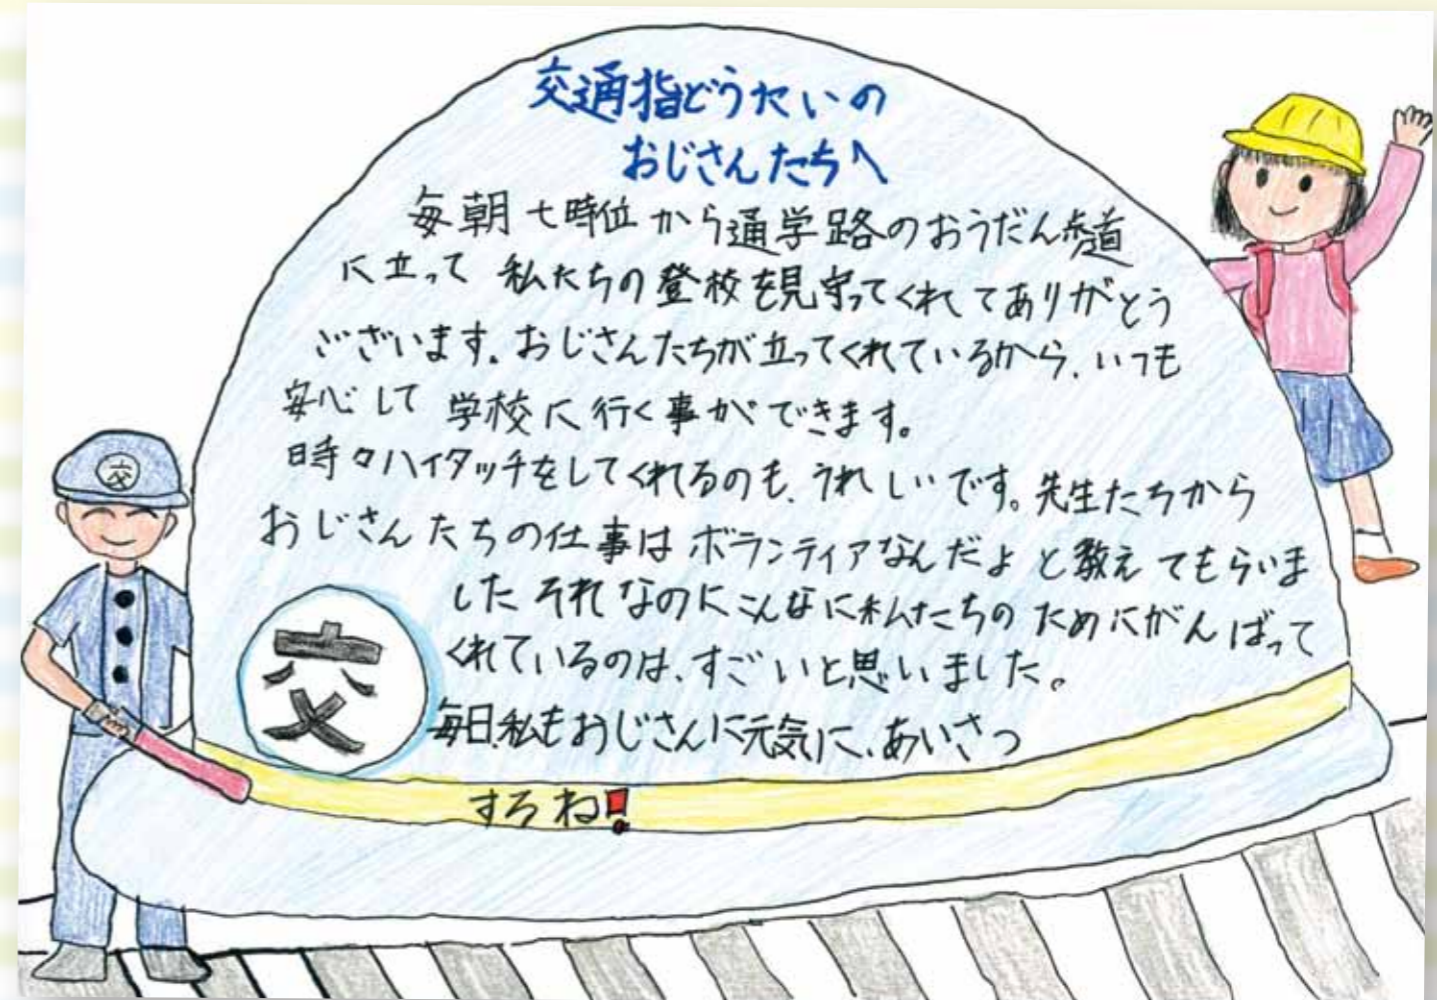 交通指どうたいの
おじさんたちへ
毎朝七時位から通学路のおうだん歩道
に立って私たちの登校を見守ってくれてありがとう
ございます。おじさんたちが立ってくれているから、いつも
安心して学校に行く事ができます。
時々ハイタッチをしてくれるのも、うれしいです。先生たちから
おじさんたちの仕事はボランティアなんだよと教えてもらいま
したそれなのにこんなに私たちのためにがんばって
くれているのは、すごいと思いました。
毎日、私もおじさんに元気に、あいさつ
するね!
交
交